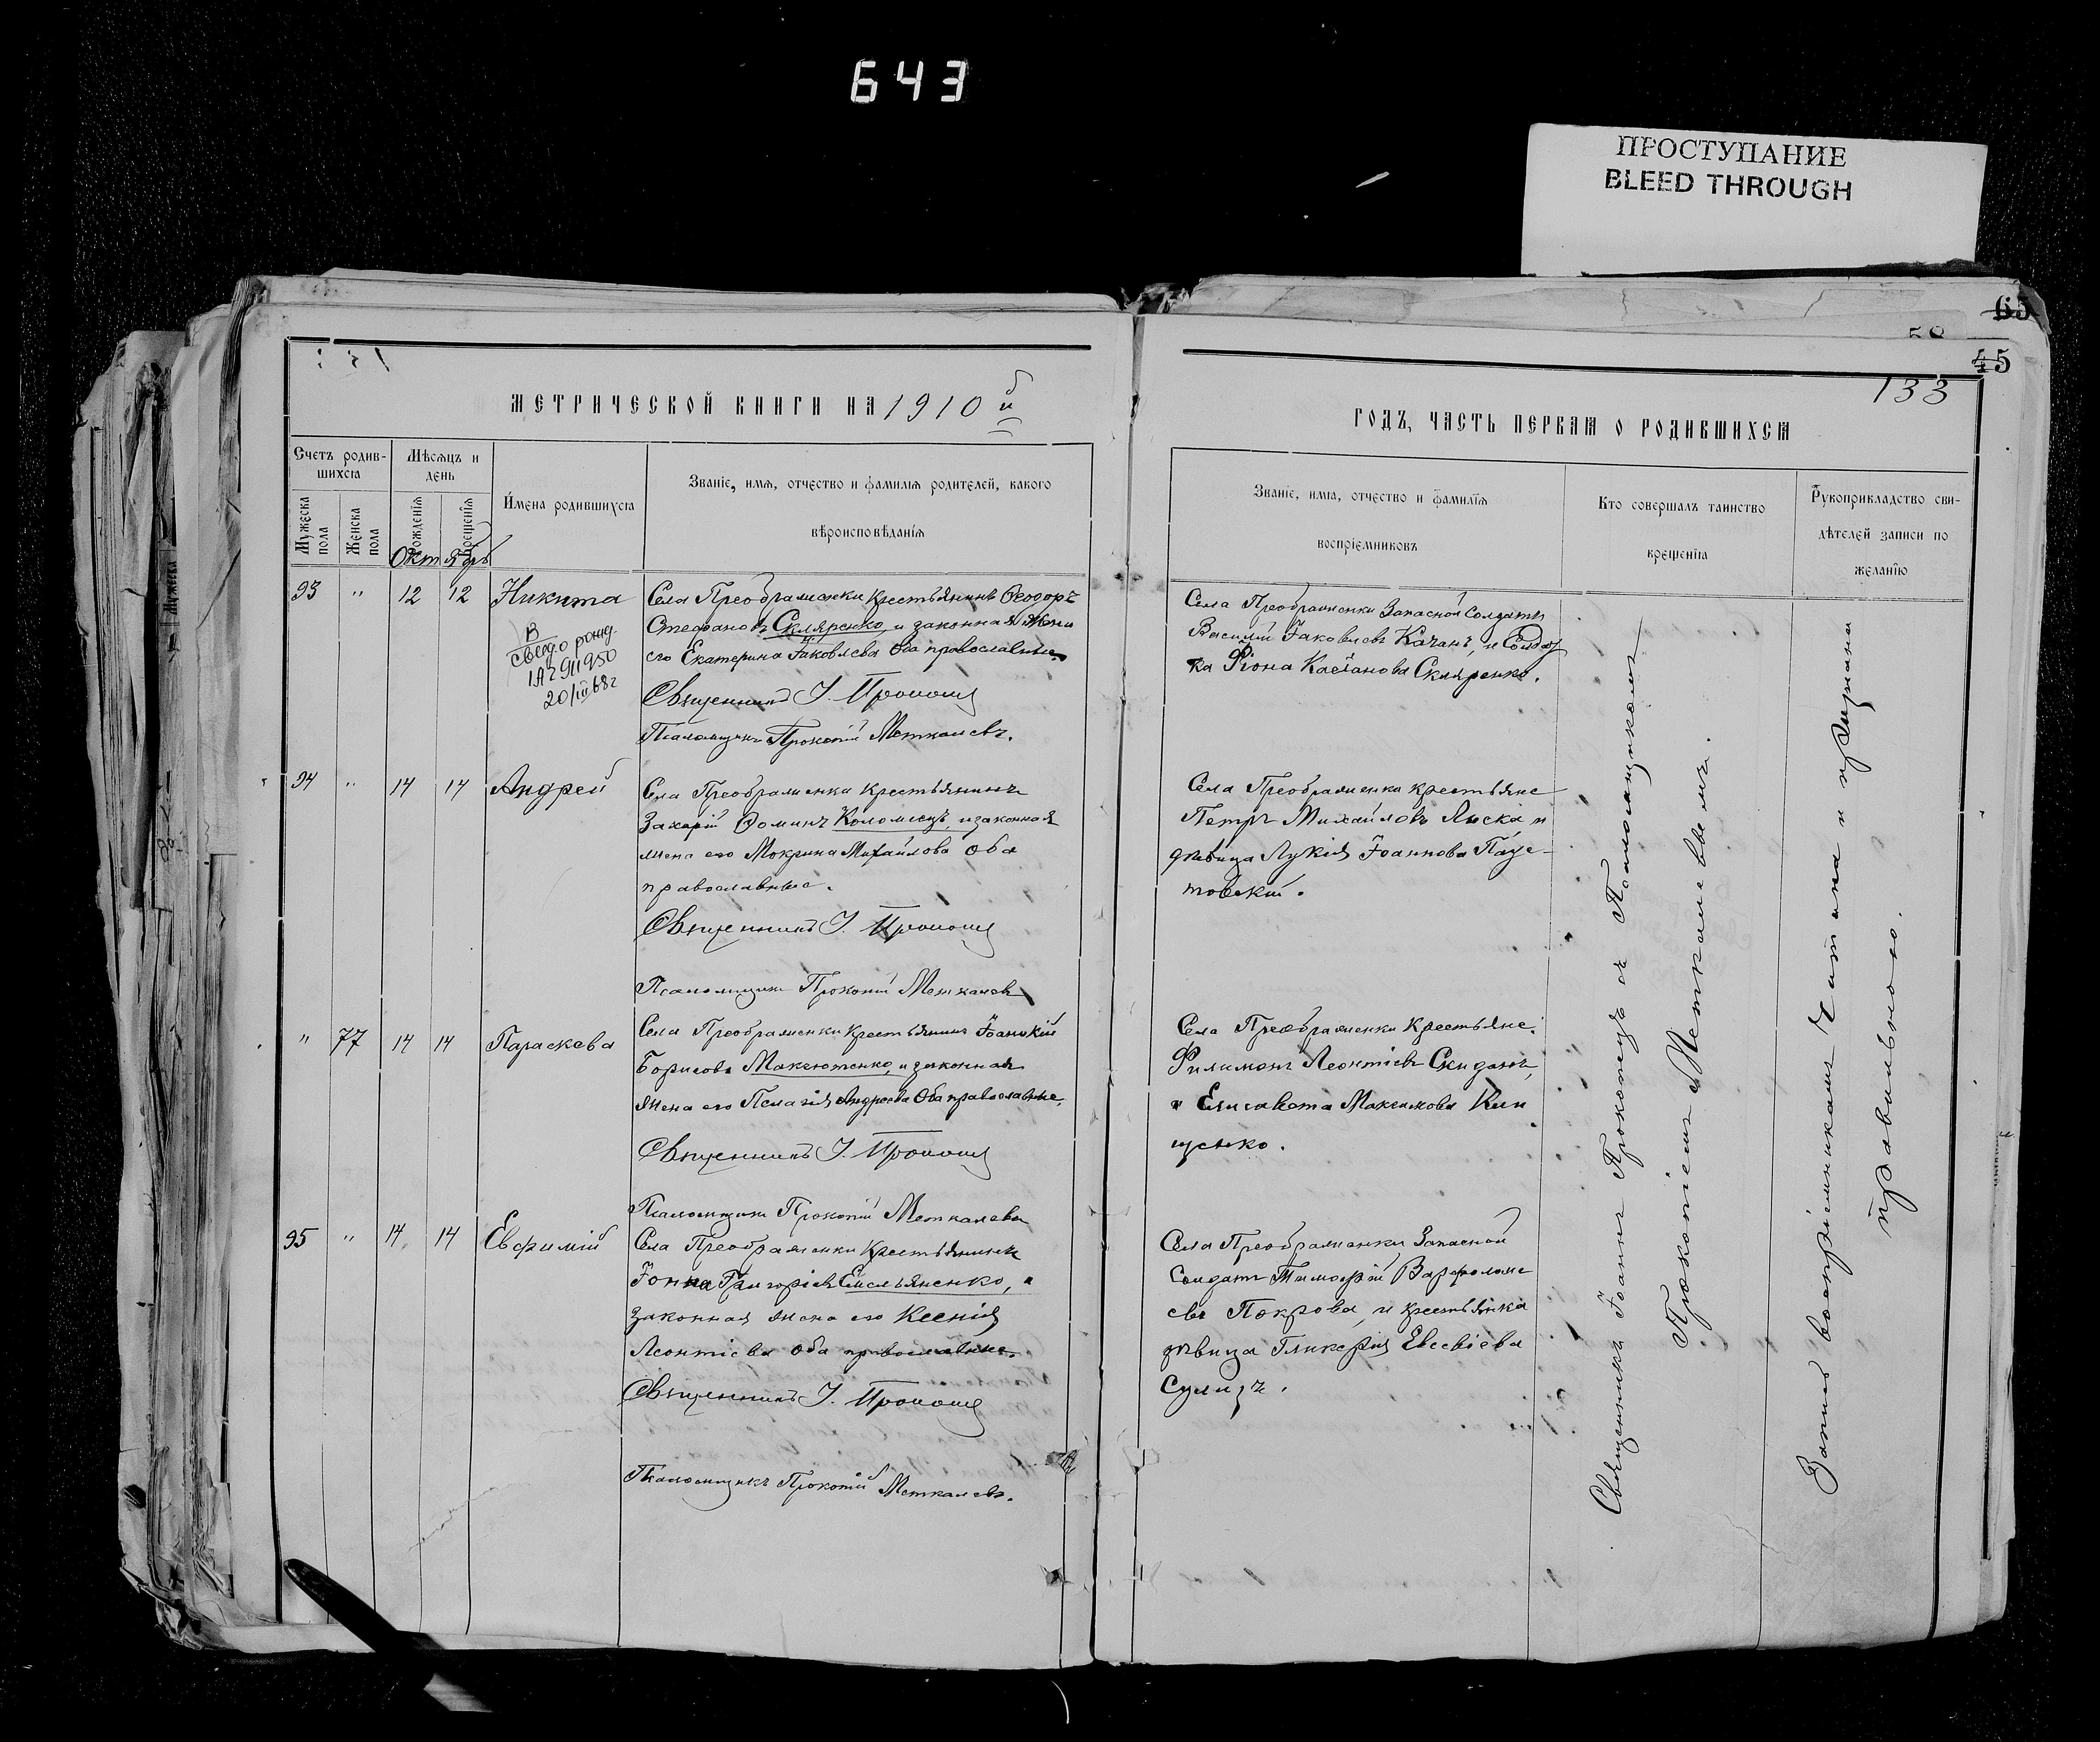 643
ПРОСТУПАНИЕ
BLEED THROUGH
65
58
45
133
МЕТРИЧЕСКОЙ КНИГИ НА 1910 й
ГОДЪ, ЧАСТЬ ПЕРВАЯ О РОДИВШИХСЯ
Счетъ родив-
шихся
Мужеска пола
Женска пола
Мѣсяцъ и
день
Рожденія
Крещенія
Октябрь
Имена родившихся
Званіе, имя, отчество и фамилія родителей, какого
вѣроисповѣданія
Званіе, имя, отчество и фамилія
воспріемниковъ
Кто совершалъ таинство
крещенія
Рукоприкладство сви-
дѣтелей записи по
желанію
93 " 12 12 Никита
В
свид. о рожд.
1А2911950
20/III 68г
Села Преображенки крестьянинъ Ѳеодоръ
Стефановъ Скляренко, и законная жена
его Екатерина Іаковлева Оба православные
Священникъ І.
Псаломщикъ Прокопій Меткалевъ.
Села Преображенки Запасной Солдатъ
Василій Іаковлевъ Качанъ, и Солдат
ка Скляренко.
94 " 14 14 Андрей
Села Преображенки Крестьянинъ
Захарій Ѳоминъ Коломіецъ, и законная
жена его Мокрина Михайлова Оба
православные.
Священникъ І.
Псаломщикъ Прокопій Меткалевъ
Села Преображенки крестьяне
Петръ Михайловъ Лиска и
дѣвица Лукія Іоаннова
" 77 14 14 Параскева
Села Преображенки Крестьянинъ Іоаникій
Борисовъ Максютенко, и законная
жена его Пелагія Андреева Оба православные.
Священникъ І.
Псаломщикъ Прокопій Меткалевъ
Села Преображенки Крестьяне:
Филимонъ Леонтіевъ Скиданъ,
и Елисавета Максимова Кли
щенко.
95 " 14 14 Евфимій
Села Преображенки Крестьянинъ
Іонна Григоріевъ Емельяненко, и
законная жена его Ксенія
Леонтіева Оба православные.
Священникъ І.
Псаломщикъ Прокопій Меткалевъ.
Села Преображенки Запасной
Солдатъ Тимофій Варфоломе
евъ Покрова, и крестьянка
дѣвица Гликерія Евсевіева
Сулизъ.
Священникъ Іоаннъ Прокопецъ съ Псаломщикомъ
Прокопіемъ Меткалевымъ.
Запись воспріемникамъ читана и признана
правильною.